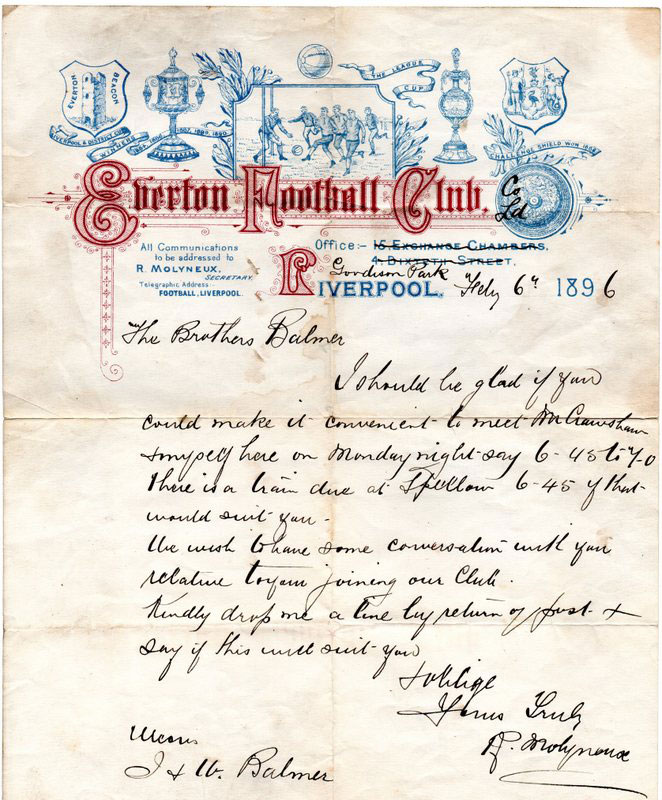 EVERTON
BEACON
LIVERPOOL & DISTRICT CUP
WINNERS
THE LEAGUE
CUP
CHALLENGE SHIELD WON
Everton Football Club, Co Ld
All Communications
to be addressed to
R. MOLYNEUX,
SECRETARY.
Telegraphic Address:-
FOOTBALL, LIVERPOOL.
Office:- 15, EXCHANGE CHAMBERS,
STREET,
Goodison Park
LIVERPOOL, Feby 6th 1896
The Brothers Balmer
I should be glad if you
could make it convenient to meet Mr Crawshaw
& myself here on Monday night say 6-45 to 7-0
There is a train due at Spellow 6-45 if that
would suit you -
We wish to have some conversation with you
relative to you joining our Club.
Kindly drop me a line by return of post &
say if this will suit you
& oblige
Yours Truly
R. Molyneux
Messrs
J & W. Balmer